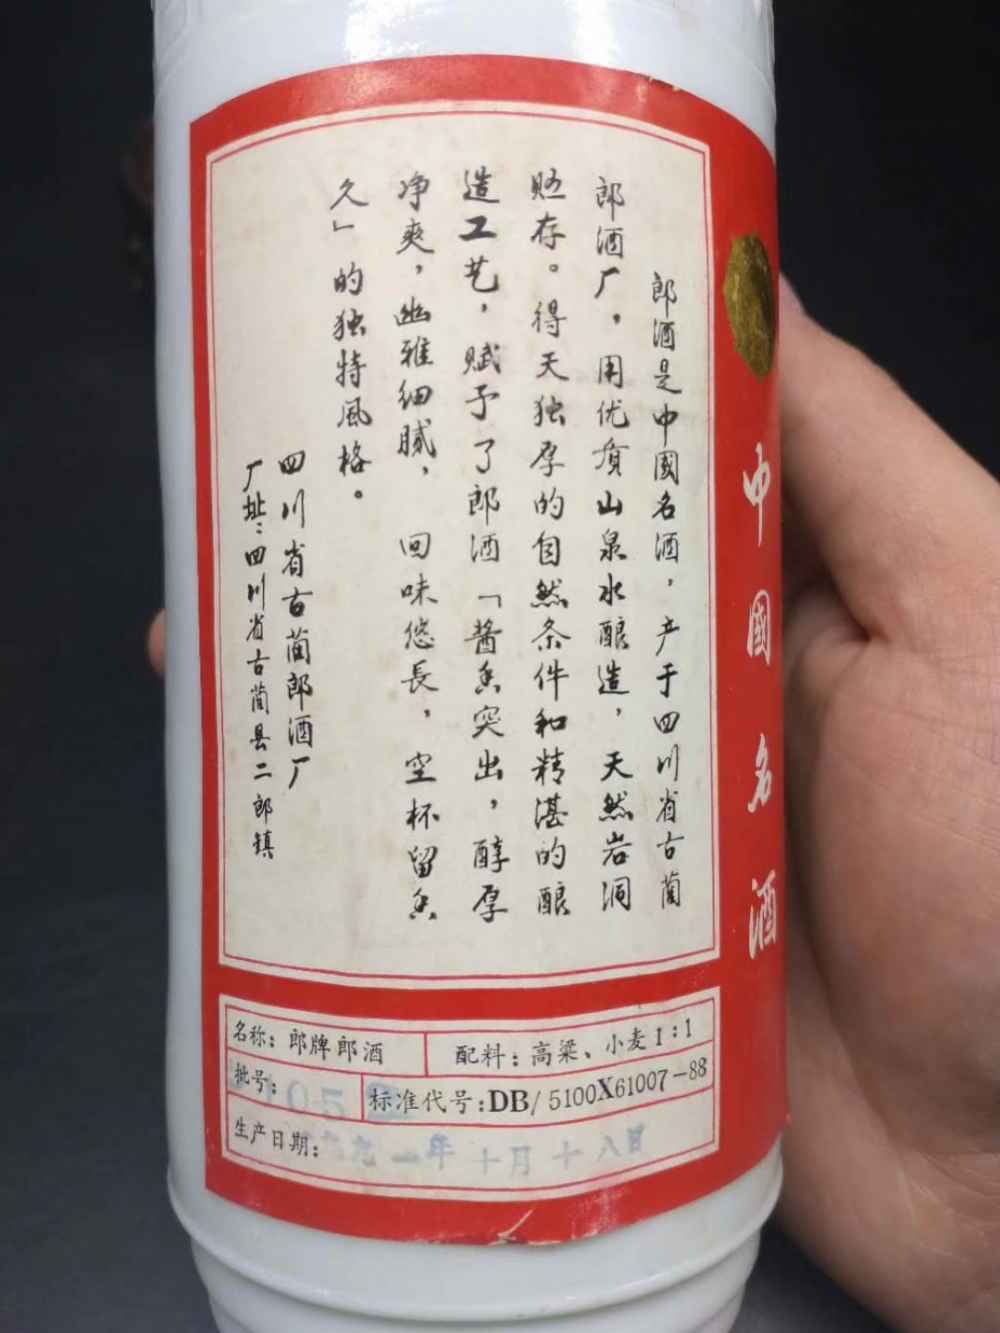 郎酒是中國名酒，产于四川省古蔺
郎酒厂，用优质山泉水酿造，天然岩洞
贮存。得天独厚的自然条件和精湛的酿
造工艺，赋予了郎酒「酱香突出，醇厚
净爽，幽雅细腻，回味悠長，空杯留香
久」的独特風格。
四川省古蔺郎酒厂
厂址：四川省古蔺县二郎镇
中國名酒
名称：郎牌郎酒
配料：高粱、小麦1:1
批号：
标准代号：DB/5100X61007-88
生产日期：一年十月十八日